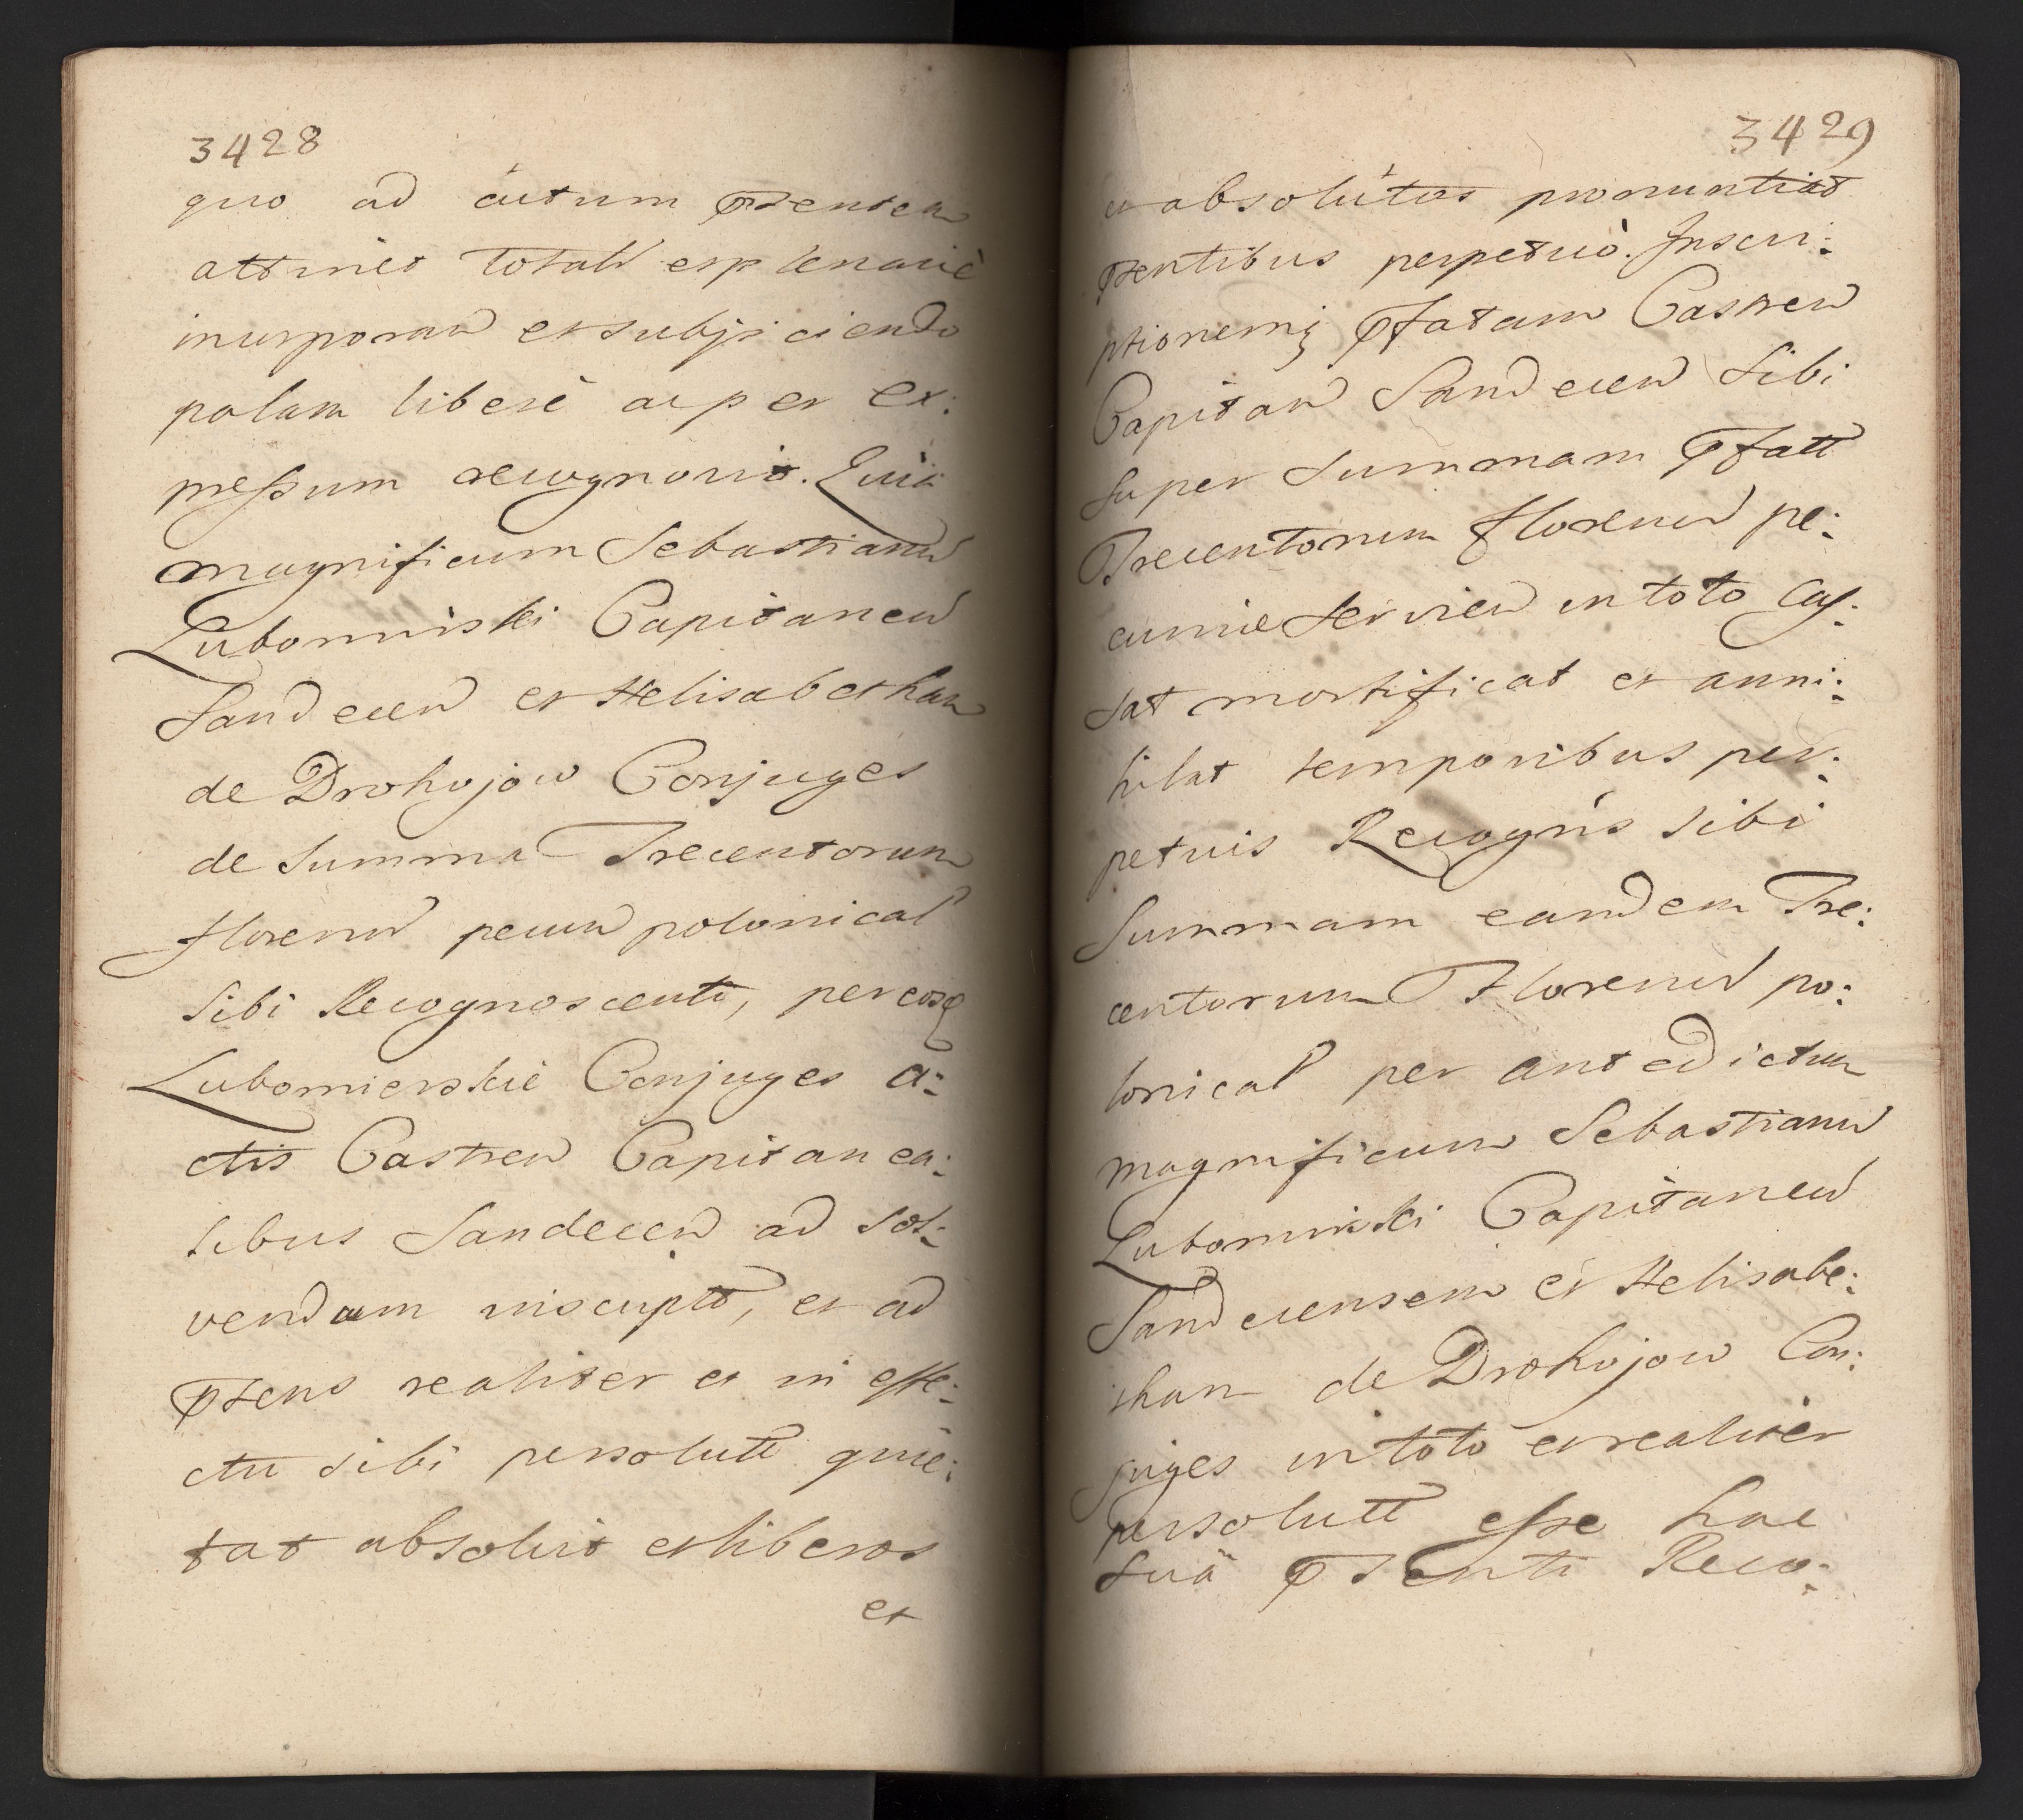 3428
quo ad actum pñsentem
attinet totalr et plenarie
incorporań et subjiciendo
palam libere ac per ex:
pressum recognovit. Quia
magnificum Sebastianū
Lubomirski Capitaneū
Sandeceń et Helisabetham
de Drohojow Conjuges
de Summa Trecentorum
florenū pecuń polonical
Sibi Recognoscenti, per eosq̃
Lubomierskie Conjuges a:
ctis Castreń Capitanea:
libus Sandeceń ad sol:
vendam inscriptt, et ad
pñsens realiter et in effe:
ctu sibi persolutt quie:
tat absolvit et liberos
et
3429
et absolutos pronuntiat
pñsentibus perpetuo. Inscri:
ptionemq̃ pfatam Castreń
Capitań Sandeceń Sibi
super Summam pfatt
Trecentorum florenū pe:
cuniæ servień in toto Cas:
sat mortificat et anni:
hilat temporibus per:
petuis Recogńs sibi
Summam eandem Tre:
centorum Florenū po:
lonical per antedictum
magnificum Sebastianū
Lubomirski Capitaneū
Sandecensem et Helisabe:
tham de Drohojow Con:
juges in toto et realiter
persolutt esse hac
Sua pñsenti Reco: